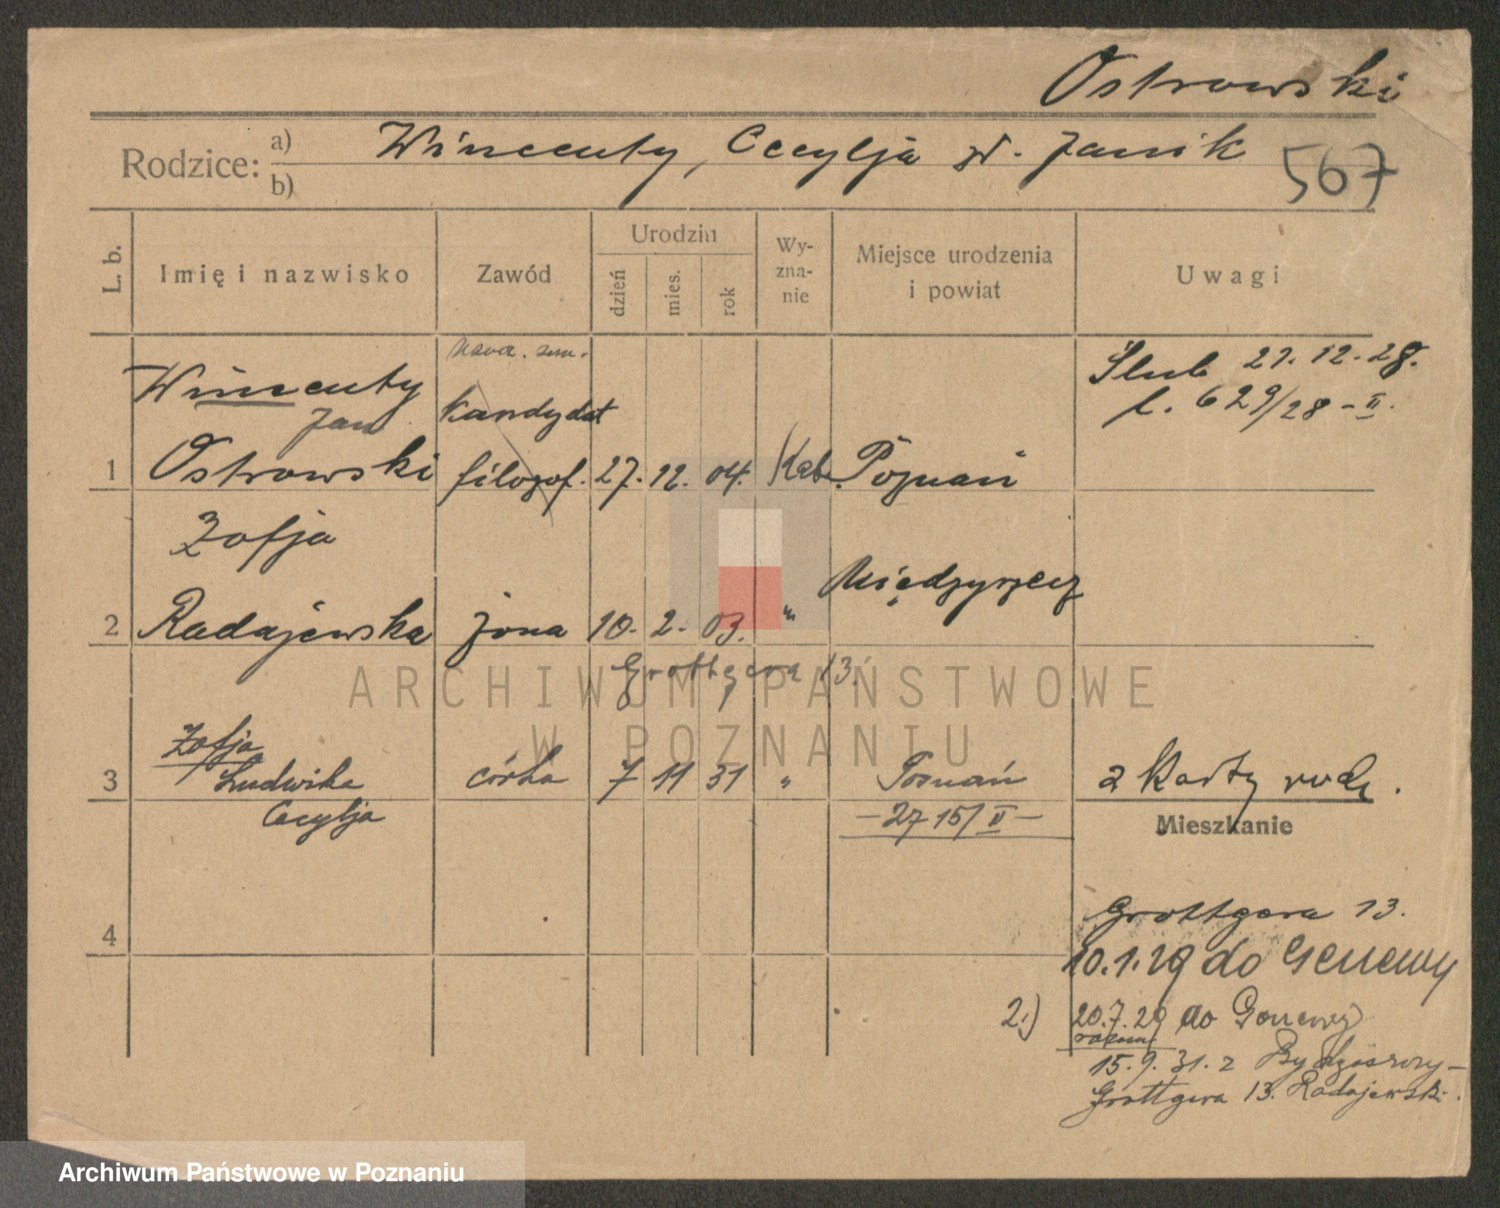 Ostrowski
Rodzice: a) Wincenty, Cecylja zd. Janik
b)
567
L. b.
Imię i nazwisko
Zawód
Urodziu
dzień
mies.
rok
Wy-
zna-
nie
Miejsce urodzenia
i powiat
Uwagi
naucz. sem.
Wincenty
Jan
kandydat
1 Ostrowski filozof. 27. 12. 04. Kat. Poznań
Ślub 27. 12. 28.
l. 629/28 - II.
Zofja
Międzyrzecz
2 Radajewska żona 10. 2. 03. "
Grottgera 13.
ARCHIWUM PAŃSTWOWE
W POZNANIU
Zofja
3 Ludwika córka 7 11 31 " Poznań z karty rodz.
Cecylja
- 27 15/II -
Mieszkanie
Grottgera 13.
4
10.1.29 do Genewy
2.) 20.7.29 do Genewy
razem
15.9.31. z Bydgoszczy -
Grottgera 13. Radajewski.
Archiwum Państwowe w Poznaniu